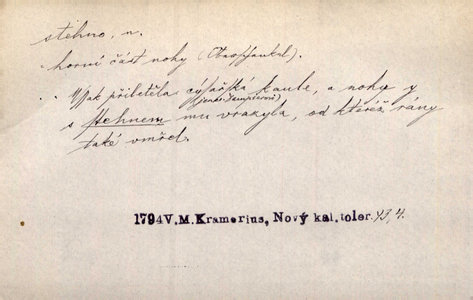 stehno, n.
horní část nohy (Oberschenkel).
Však přiletěla cýsařská kaule, a nohu y
s stehnem mu vrazyla, od kteréž rány
také umřel.
1794 V.M.Kramerius, Nový kal.toler. 93,4.